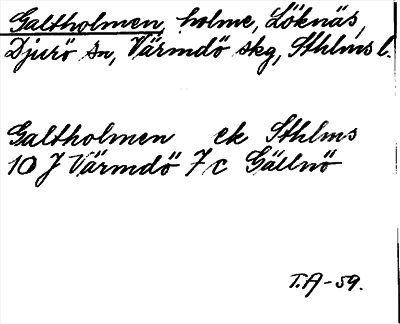 Galtholmen, holme, Löknäs,
Djurö sn, Värmdö skg, Sthlms l.
Galtholmen ek Sthlms
10 J Värmdö 7 c Gällnö
T.A-59.